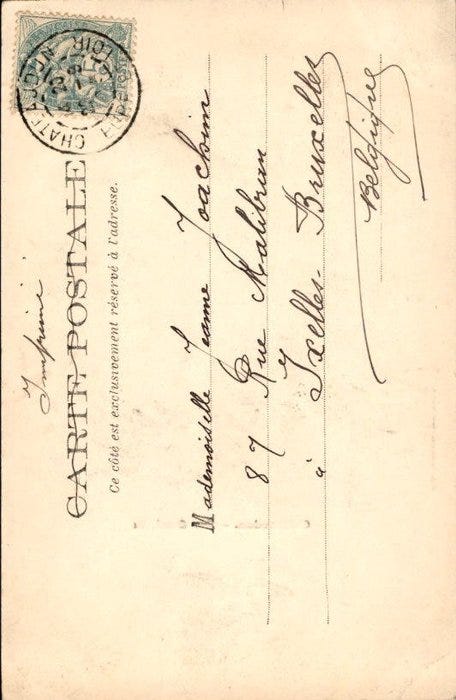 Imprimé
CARTE POSTALE
Ce côté est exclusivement réservé à l'adresse.
CHATEAUDUN
Mademoiselle Jeanne Joachim
87 Rue Malibran
à Ixelles Bruxelles
Belgique